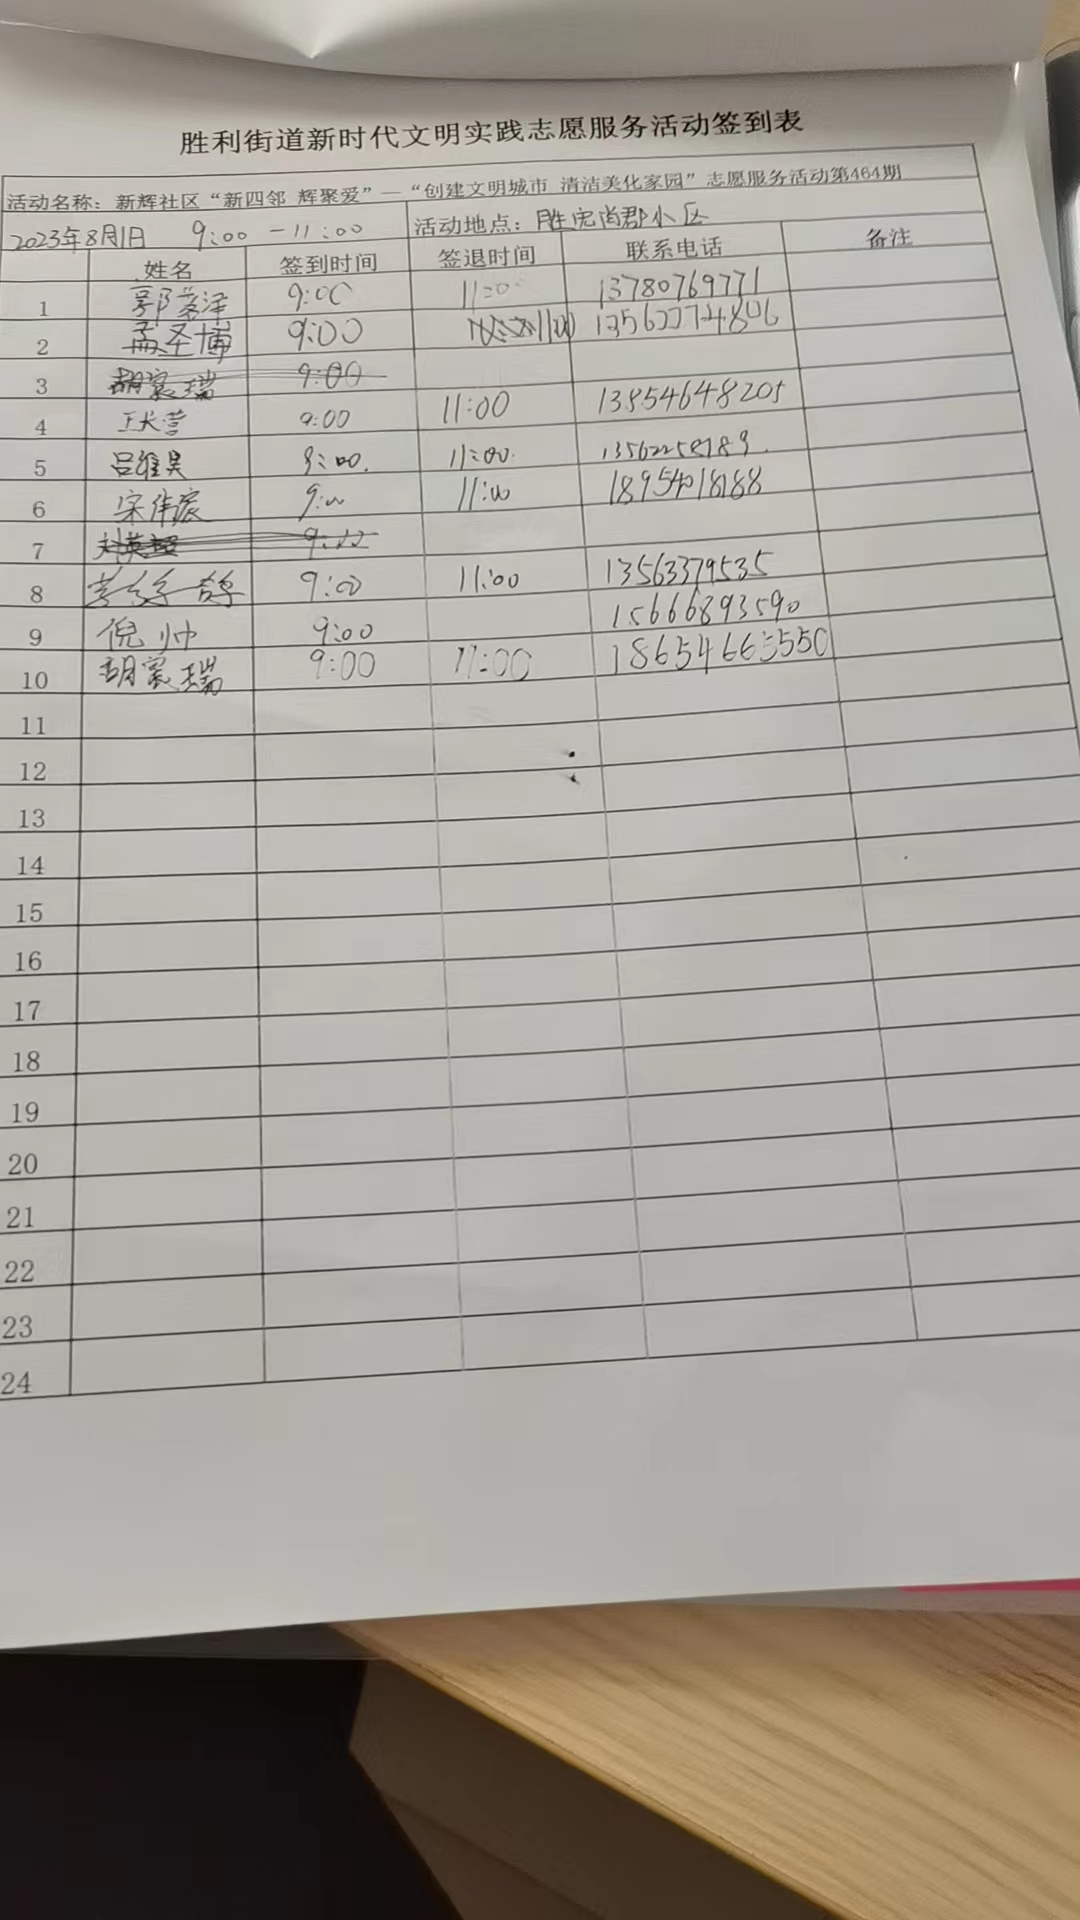 胜利街道新时代文明实践志愿服务活动签到表
活动名称：新辉社区“新四邻 辉聚爱”—“创建文明城市 清洁美化家园”志愿服务活动第464期
2023年8月1日 9:00－11:00 活动地点：胜宏尚郡小区
姓名 签到时间 签退时间 联系电话 备注
1 9:00 11:00 13780769771
2 孟圣博 9:00 11:00
3 胡宸瑞 9:00
4 王长营 9:00 11:00 13854648205
5 吕维昊 9:00. 11:00.
6 宋伟宸 9:00 11:00 18954018188
7
8 9:00 11:00 13563379535
9 倪帅 9:00 15666893590
10 胡宸瑞 9:00 11:00 18654665550
11
12
13
14
15
16
17
18
19
20
21
22
23
24